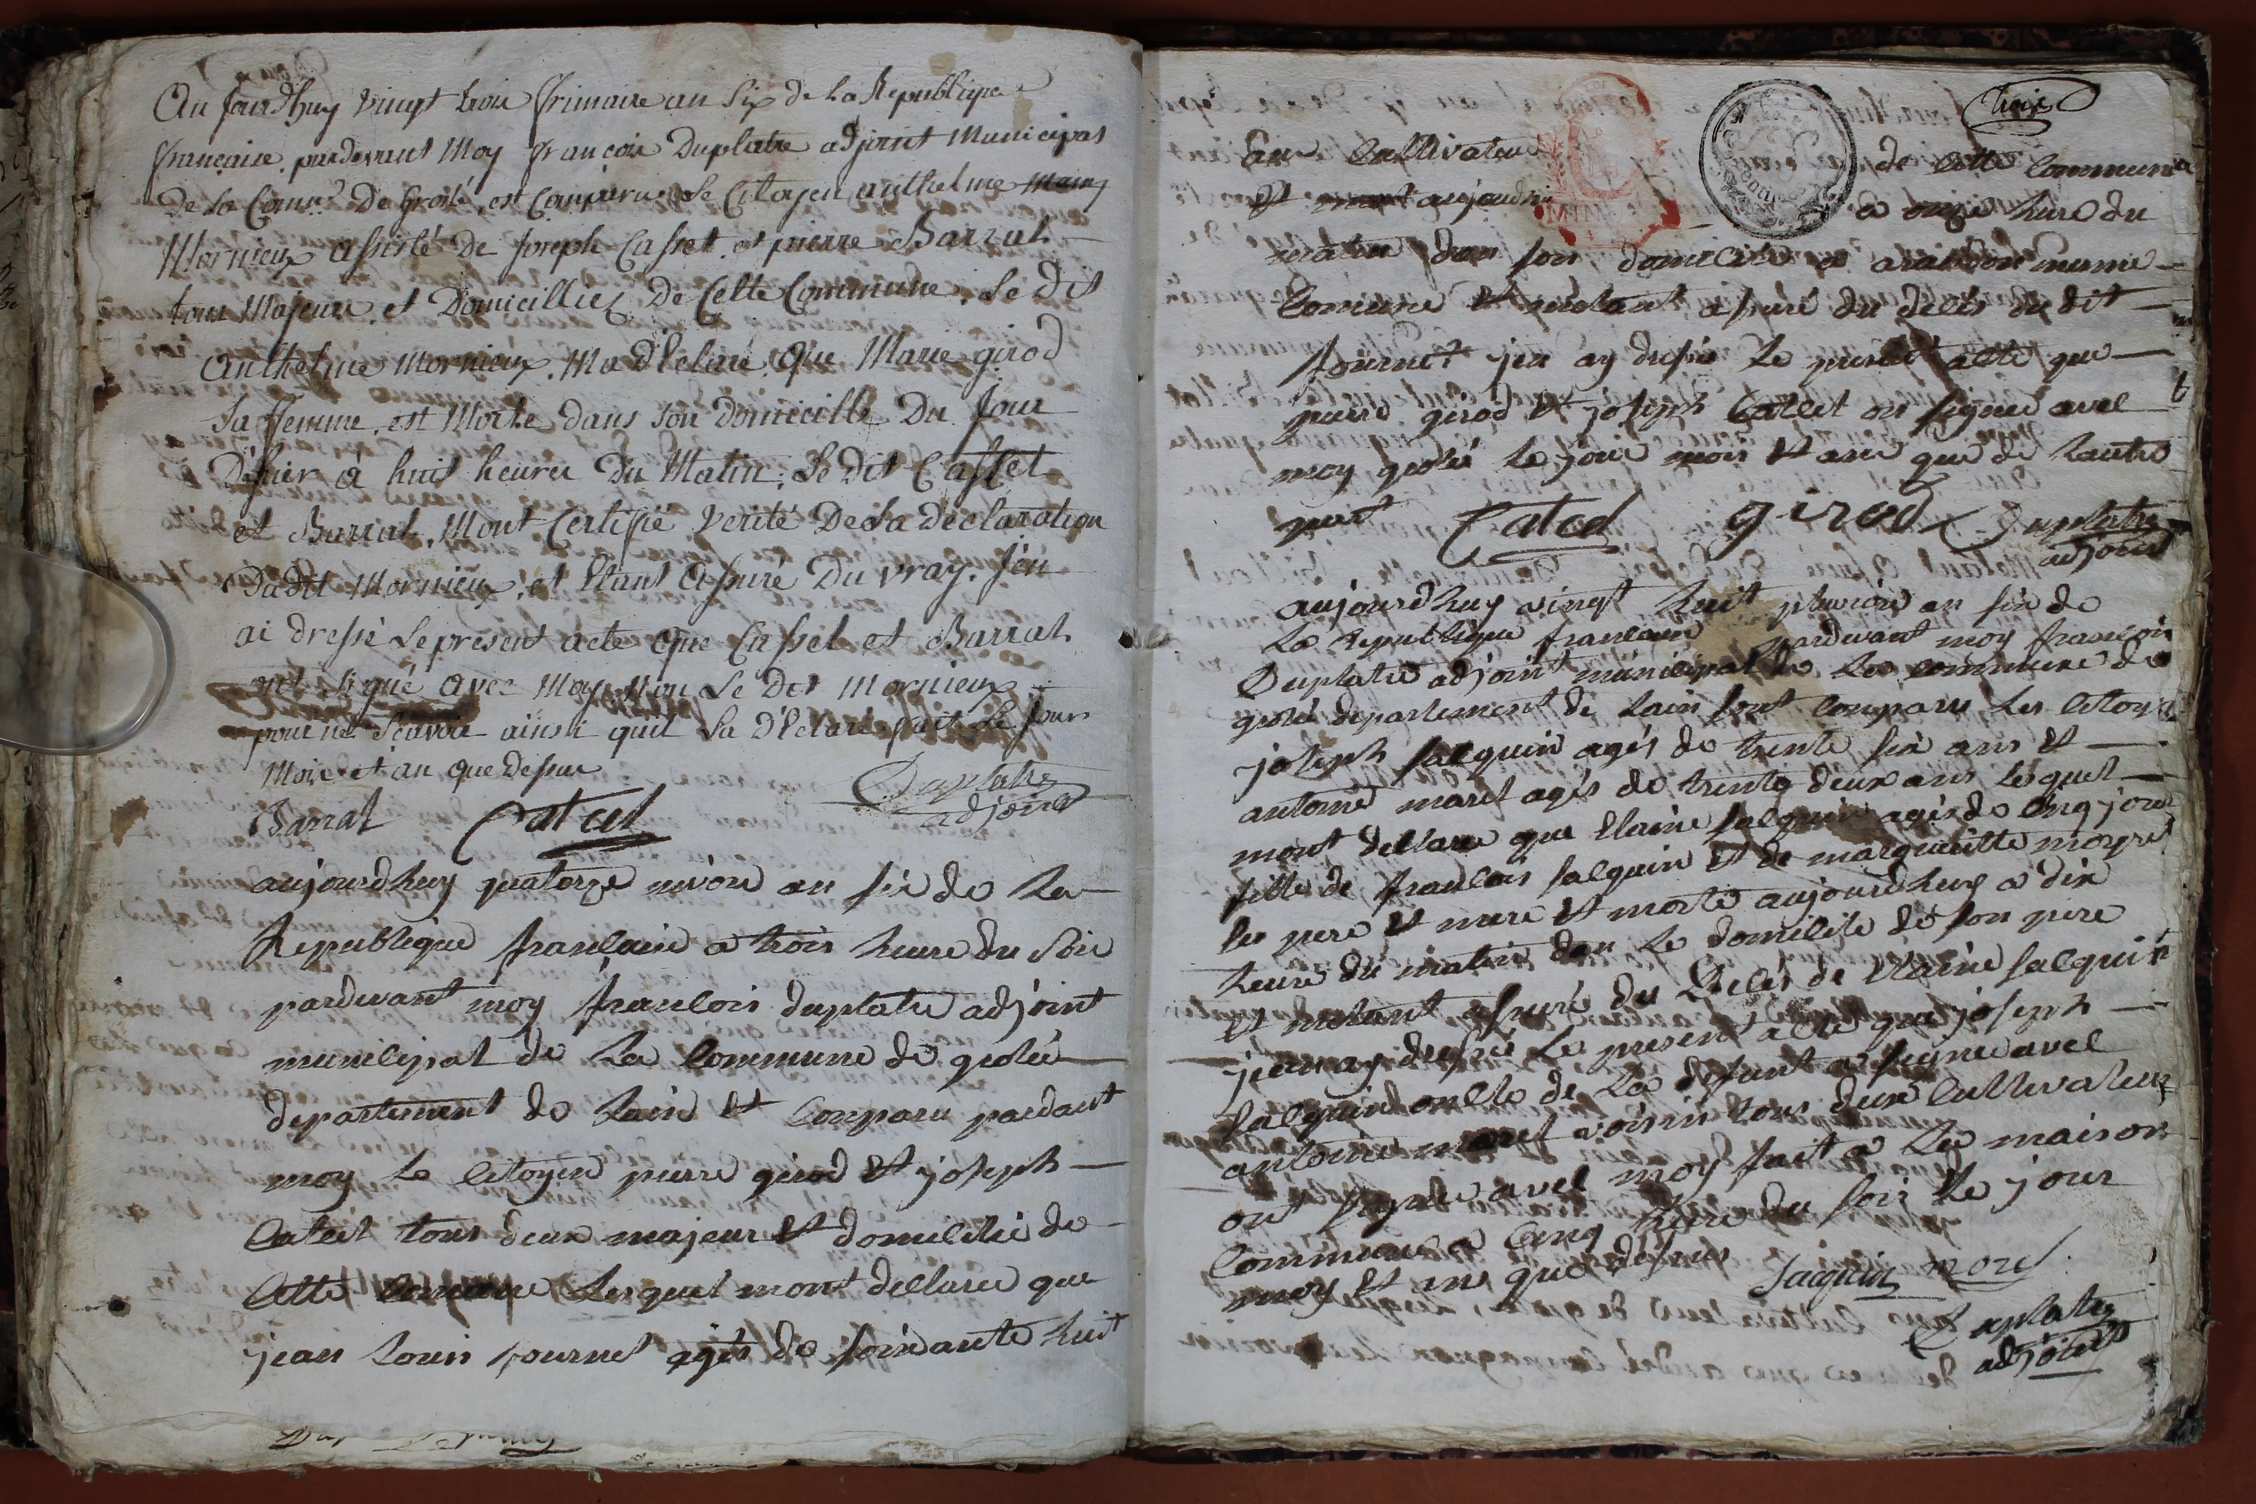 Au Jourdhuy vingt trois frimaire an Six de La Republique
française, pardevant Moy françois Duplatre adjoint Municipal
De La Comm.e De Groslé, est Comparu Le Citoyen anthelme
Mornieux assisté De Joseph Casset et pierre Barrat
tous Majeurs et Domicilliez De Cette Commune, Le Dit
Anthelme Mornieux, Ma d'Eclaré, Que Marie girod
Sa ffemme, est Morte dans son Domicille Du Jour
D'hier à huit heures Du Matin, Le Dit Casset
et Barrat, Mont Certifié Verité De Sa declaration
Dudit Mornieux, et Etant assuré Du vray, J'en
ai dressé Le present acte Que Casset et Barrat
ont signé avec Moy Non Le Dit Mornieux
pour ne Scavoir ainsi quil La d'Eclaré fait Le Jour
Mois et an que Dessus
Barrat Catcet Duplatre
adjoint
aujourdhuy quatorze nivose an six de La
Republique francaise a trois heure du Soir
pardevant moy francois duplatre adjoint
municipal de La Commune de groslé
departement de Lain Et Comparu pardavant
moy Le Citoyen pierre girod Et joseph
Catcet tous deux majeur Et domicilié de
Cette Comune Lesquel mont declaree que
jean Louis fournet agés de soixante huit
trois
ans Cultivateur de Cette Commune
Et mort aujourdhui a onze heure du
matin dans son domicile
Comune Et metant assuré du déces du dit
fournet jen ay dressé Le present acte que
pierre girod Et joseph Catcet on signé avec
moy groslé Le jour mois Et ans que de Lautre
part Catcet girod Duplatre
adjoint
aujourdhuy vingt huit pluviose an six de
La Republique francaise pardevant moy francois
Duplatre adjoint municipal de La commune de
groslé departement de Lain sont Comparu Les Citoyen
joseph salquin agés de trente six ans Et
antoine maret agés de trente deux ans Lesquel
mont declaree que Claine salquin agés de cinq jour
fille de francois salquin Et de margueritte moyret
ses pere Et mere Et morte aujourdhuy a dix
heure du matin dan Le domicile de son pere
Et metant assuré du décés de Claine salquin
jean ay dressé Le present acte que joseph
salquin oncle de La defunt a signé avec
antoine maret voisin tous deux Cultivateur
ont signé avec moy fait a La maison
Commune a Cinq heure du soir Le jour
moy Et ans que dessus
Jacquin moret
Duplatre
adjoint